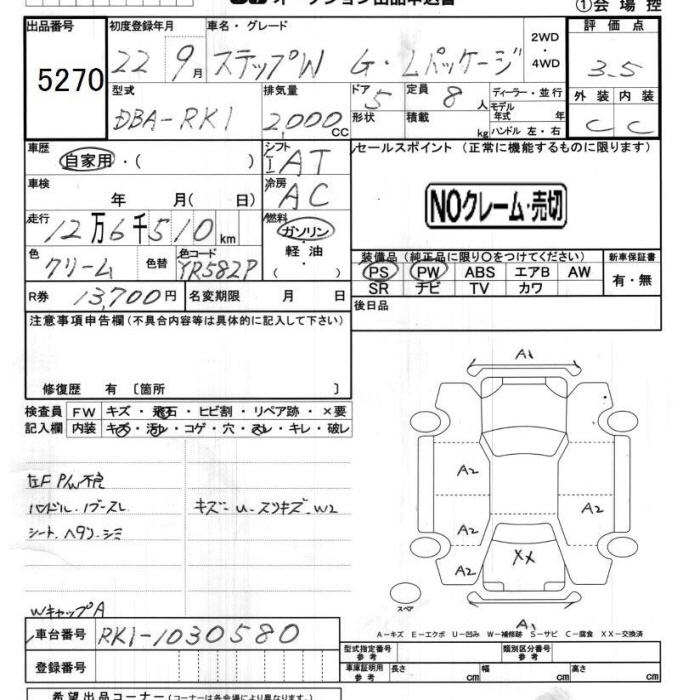 オークション出品申込書
①会場控
出品番号
5270
初度登録年月
22 9月
車名・グレード
ステップW G・Lパッケージ
2WD・4WD
評価点
3.5
型式
DBA-RK1
排気量
2,000 CC
ドア
5
形状
定員
8人
積載
kg
ディーラー・並行
モデル年式 年
ハンドル 左・右
外装 内装
C C
車歴
自家用・( )
シフト
I AT
セールスポイント (正常に機能するものに限ります)
車検
年 月( 日)
冷房
AC
NOクレーム・売切
走行
12万6千510km
燃料
ガソリン・軽・油( )
色
クリーム
色替
色コード
YR582P
装備品(純正品に限り○をつけてください)
新車保証書
PS PW ABS エアB AW
有・無
SR ナビ TV カワ
R券 13,700円
名変期限 月 日
後日品
注意事項申告欄(不具合内容等は具体的に記入して下さい)
修復歴 有 〔箇所 〕
検査員記入欄
FW キズ・飛石・ヒビ割・リペア跡・×要
内装 キズ・汚レ・コゲ・穴・スレ・キレ・破レ
左F P/W不良
ハンドル・ノブ-スレ
キズ-U-スリキズ-W2
シート.ヘタリ.シミ
WキャップA
A1
A2
A2
A2
A2
A2
XX
A1
スペア
A-キズ E-エクボ U-凹み W-補修跡 S-サビ C-腐食 XX-交換済
車台番号
RK1-1030580
登録番号
型式指定番号参考
類別区分番号参考
車庫証明用参考
長さ cm
幅 cm
高さ cm
希望出品コーナー(コーナーは各会場により異なります。)